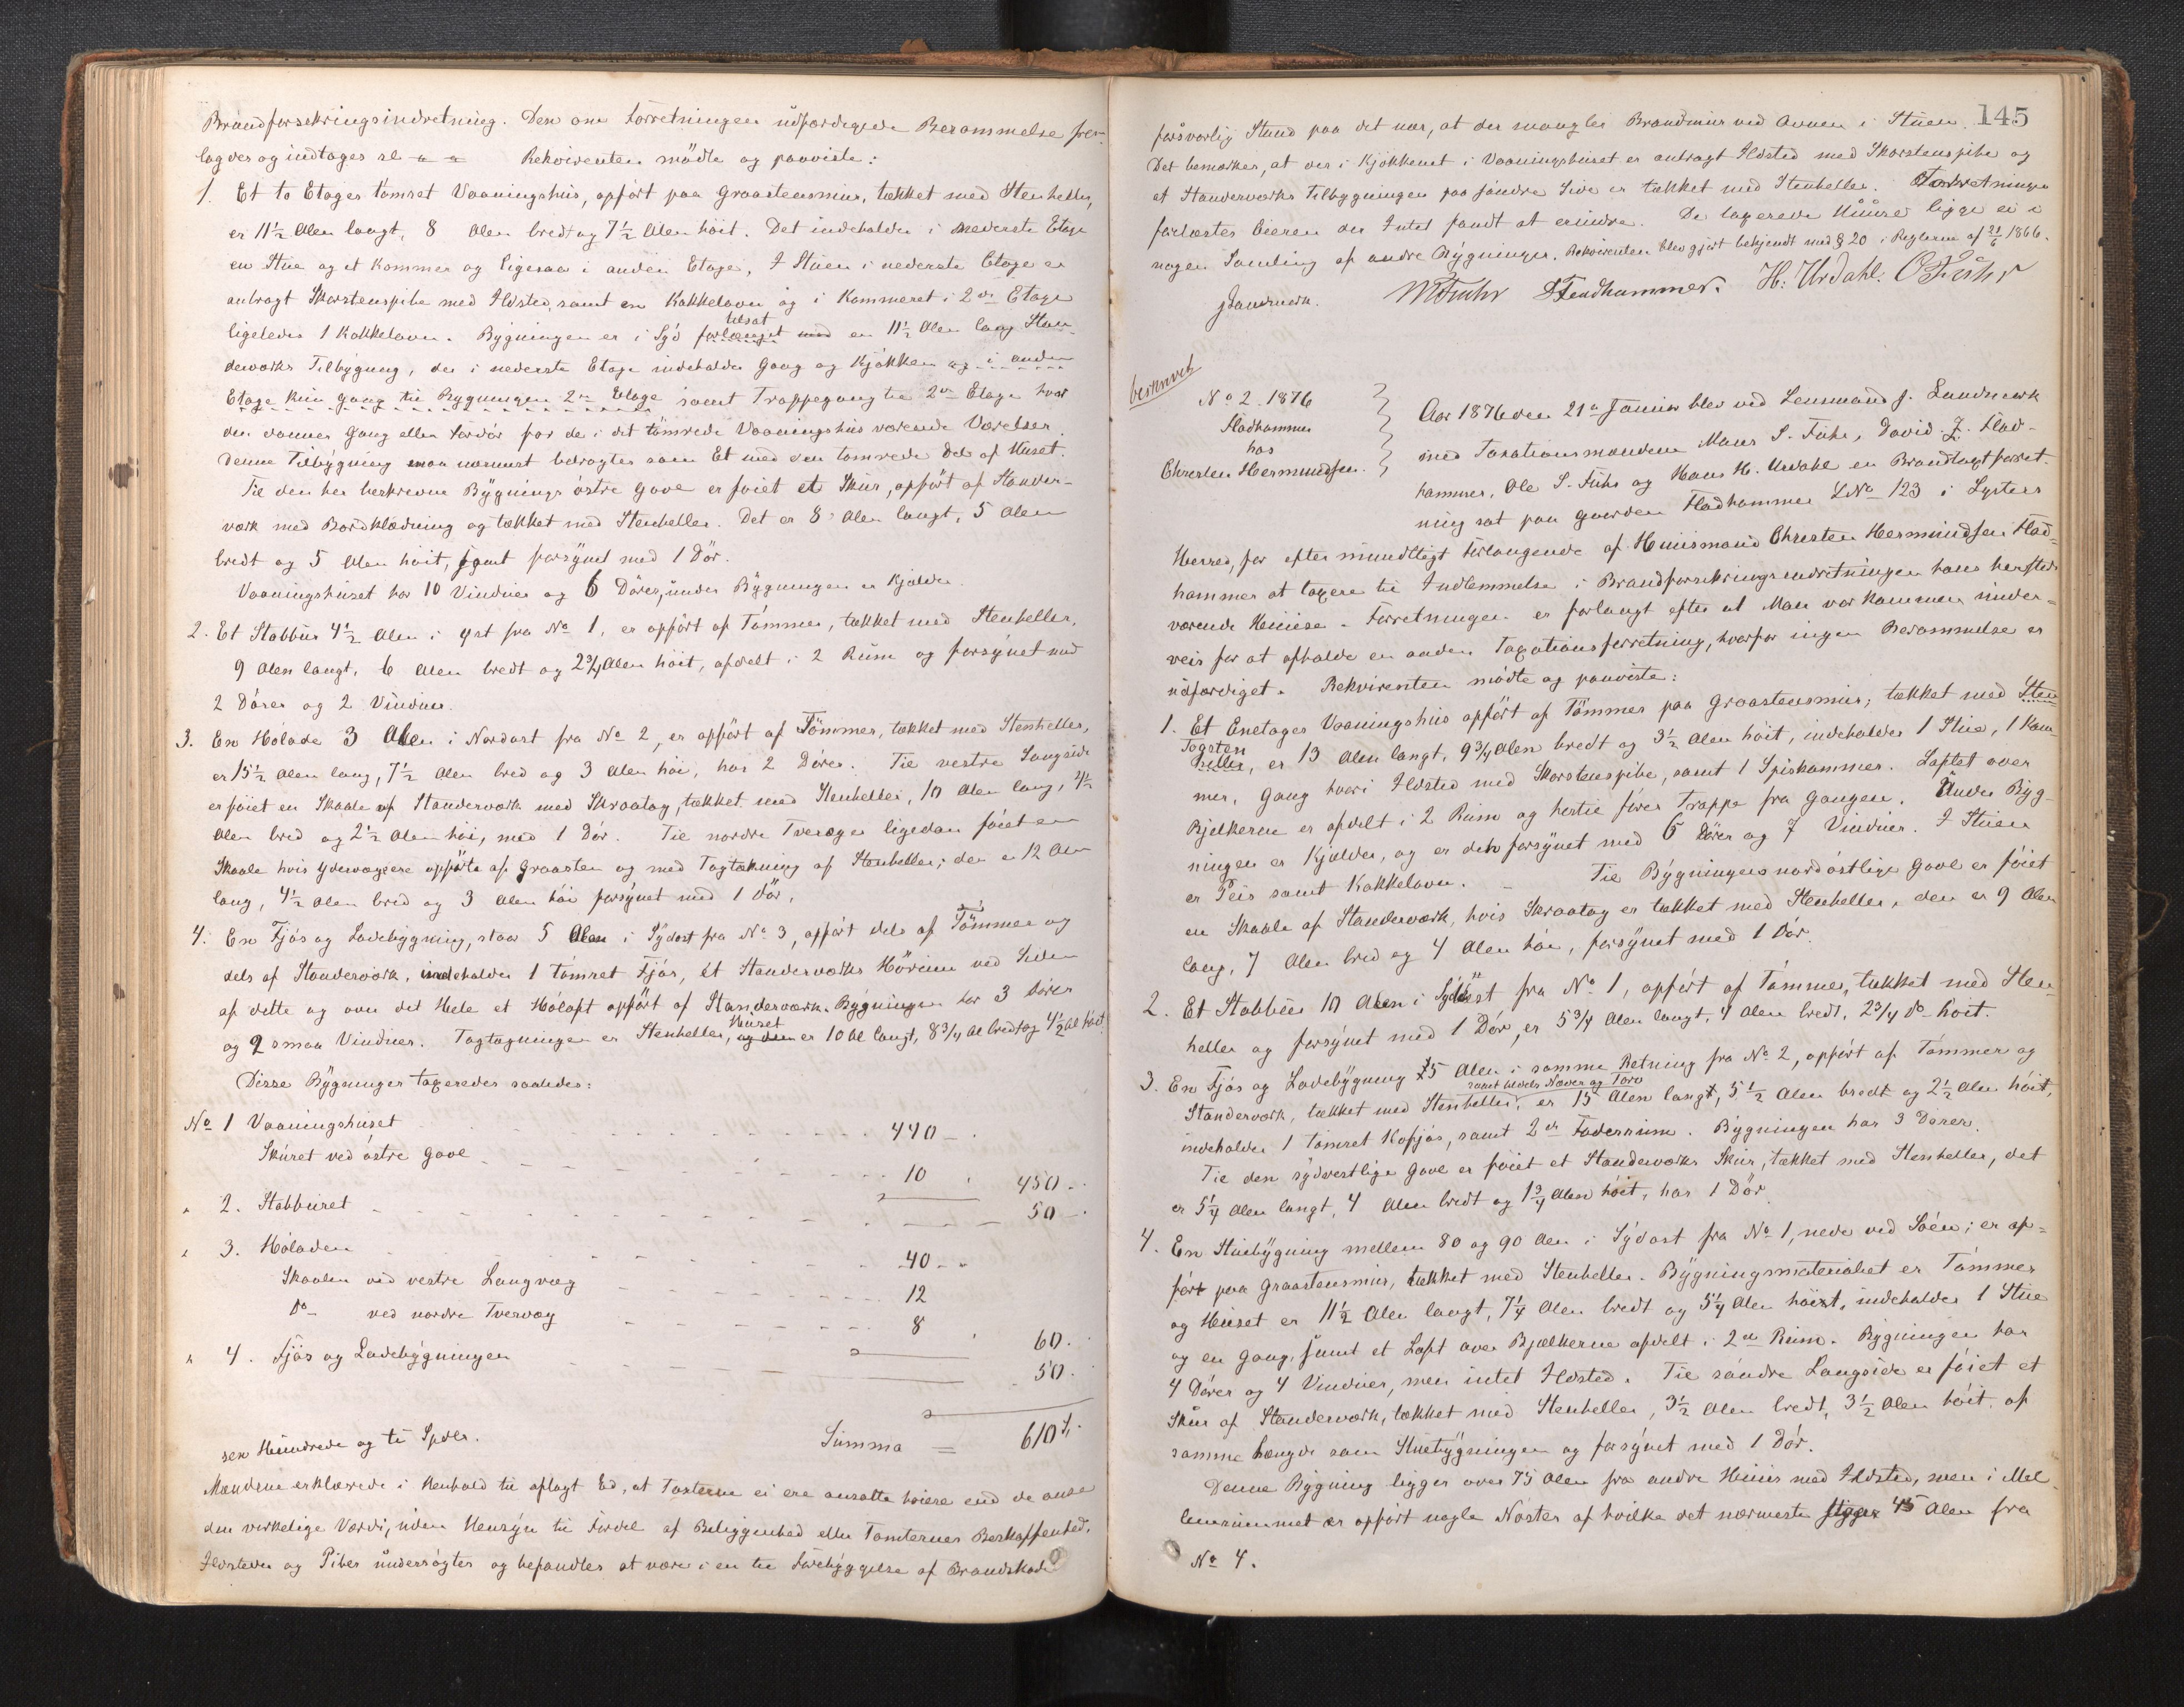 Brandforsikringsindretning. Den om Forretningen udfærdigede Berammelse frem-
lagdes og indtages sl " " Rekvirenten mödte og paaviste:
1. Et to Etages tömret Vaaningshus, opfört paa Graastensmur, tækket med Stenheller,
er 11½ Alen langt, 8 Alen bredt og 7½ Alen höit. Det indeholder i nederste Etage
en Stue og et Kammer og ligesaa i anden Etage, I Stuen i nederste Etage er
anbragt Skorstenspibe med Ildsted, samt en Kakkelovn og i Kammeret i 2den Etage
ligeledes 1 Kakkelovn. Bygningen er i Syd forlænget med tilsat en 11½ Alen lang Stan-
derværks Tilbygning, der i nederste Etage indeholder Gang og Kjökken og i anden
Etage kun Gang til Bygningen 2den Etage samt Trappegang til 2den Etage hvor
den danner Gang eller Fordör for de i det tömrede Vaaningshus værende Værelser.
Denne Tilbygning maa nærmest betragtes som Et med den tömrede Del af Huset.
Til den her beskrevne Bygnings östre Gavl er föiet et Skur, opfört af Stander-
værk med Bordklædning og tækket med Stenheller. Det er 8 Alen langt, 5 Alen
bredt og 5 Alen höit, samt forsynet med 1 Dör.
Vaaningshuset har 10 Vinduer og 6 Dörer, under Bygningen er Kjælder.
2. Et Stabbur 4½ Alen i Öst fra No 1, er opfört af Tömmer, tækket med Stenheller,
9 Alen langt, 6 Alen bredt og 2¾ Alen höit, afdelt i 2 Rum og forsynet med
2 Dörer og 2 Vinduer.
3. En Hölade 3 Alen i Nordost fra No 2, er opfört af Tömmer, tækket med Stenheller,
er 15½ Alen lang, 7½ Alen bred og 3 Alen höi, har 2 Dörer. Til vestre Langside
er föiet en Skaale af Standerværk med Skraatag, tækket med Stenheller, 10 Alen lang, 4½
Alen bred og 2½ Alen höi, med 1 Dör. Til nordre Tværvæg er ligedan föiet en
Skaale hvis Ydervægge ere opförte af Graasten og med Tagtækning af Stenheller; den er 12 Alen
lang, 4½ Alen bred og 3 Alen höi forsynet med 1 Dör.
4. En Fjös og Ladebygning, staar 5 Alen i Sydost fra No 3, opfört dels af Tömmer og
dels af Standerværk, indeholder 1 tömret Fjös, et Standerværks Hörum ved Siden
af dette og over det Hele et Höloft opfört af Standerværk. Bygningen har 3 Dörer
og 2 smaa Vinduer. Tagtagningen er Stenheller, og den Huset er 10 Al langt, 8¾ Al bredt og 4½ Al höit.
Disse Bygninger taxeredes saaledes:
No 1 Vaaningshuset 440 -
Skuret ved östre Gavl 10 " 450 -
" 2. Stabburet 50 -
" 3. Höladen 40 -
Skaalen ved vestre Langvæg 12
Do ved nordre Tvervæg 8 " 60.
" 4. Fjös og Ladebygningen 50.
sex Hundrede og ti Spdlr. Summa = 610
Mændene erklærede i Henhold til aflagt Ed, at Taxterne ei ere ansatte höiere end de anse
den virkelige Værdi, uden Hensyn til Fordel af Beliggenhed eller Tomternes Beskaffenhed.
Ildsteder og Piber undersögtes og befandtes at være i en til Forebyggelse af Brandskade
145
forsvarlig Stand paa det nær, at der mangler Brandmur ved Ovnen i Stuen.
Det bemærkes, at der i Kjökkenet i Vaaningshuset er anbragt Ildsted med Skorstenspibe og
at Standerværks Tilbygningen paa söndre Side er tækket med Stenheller. Forretningen
forlæstes Eieren der Intet fandt at erindre. De taxerede Huuse ligge ei i
nogen Samling af andre Bygninger. Rekvirenten blev gjort bekjendt med § 20 i Reglerne af 21/6 1866.
J Landmark. M Fuhr D Fladhammer. H: Urdahl. O Fuhr
beskrevet
No 2 1876
Fladhammer
hos
Christen Hermundsen.
Aar 1876 den 21de Januar blev ved Lensmand J. Landmark
med Taxationsmændene Mons S. Fuhr, David J. Flad-
hammer, Ole S. Fuhr og Hans H. Urdahl en Brandtaxtforret-
ning sat paa Gaarden Fladhammer LNo 123 i Lysters
Herred, for efter mundtligt Forlangende af Huusmand Christen Hermundsen Flad-
hammer at taxere til Indlemmelse i Brandforsikringsindretningen hans hersteds
værende Huuse. Forretningen er forlangt efter at Man var kommen under-
veis for at afholde en anden Taxationsforretning, hvorfor ingen Berammelse er
udfærdiget. Rekvirenten mödte og paaviste:
1. Et Enetages Vaaningshus opfört af Tömmer paa Graastensmur, tækket med Sten
heller Tagsten, er 13 Alen langt, 9¾ Alen bredt og 3½ Alen höit, indeholder 1 Stue, 1 Kam-
mer, Gang hvori Ildsted med Skorstenspibe, samt 1 Spiskammer. Loftet over
Bjelkerne er afdelt i 2 Rum og hertil förer Trappe fra Gangen. Under Byg-
ningen er Kjælder, og er den forsynet med 6 Dörer og 7 Vinduer. I Stuen
er Peis samt Kakkelovn. – Til Bygningens nordöstlige Gavl er föiet
en Skaale af Standerværk, hvis Skraatag er tækket med Stenheller, den er 9 Alen
lang, 7 Alen bred og 4 Alen höi, forsynet med 1 Dör.
2. Et Stabbur 10 Alen i Sydöst fra No 1, opfört af Tömmer, tækket med Sten-
heller og forsynet med 1 Dör, er 5¾ Alen langt, 4 Alen bredt, 2¾ do höit.
3. En Fjös og Ladebygning 15 Alen i samme Retning fra No 2, opfört af Tömmer og
Standerværk, tækket med Stenheller, samt tildels Næver og Törv er 15 Alen langt, 5½ Alen bredt og 2½ Alen höit,
indeholder 1 tömret Kofjös, samt 2de Foderrum. Bygningen har 3 Dörer.
Til den sydvestlige Gavl er föiet et Standerværks Skur, tækket med Stenheller, det
er 5¼ Alen langt, 4 Alen bredt og 1¾ Alen höit, har 1 Dör.
4. En Stuebygning mellem 80 og 90 Alen i Sydost fra No 1, nede ved Söen; er op-
fört paa Graastensmur, tækket med Stenheller. Bygningsmaterialiet er Tömmer
og Huset er 11½ Alen langt, 7¼ Alen bredt og 5¼ Alen höit, indeholder 1 Stue
og en Gang, samt et Loft over Bjælkerne afdelt i 2de Rum. Bygningen har
4 Dörer og 4 Vinduer, men intet Ildsted. Til söndre Langside er föiet et
Skur af Standerværk, tækket med Stenheller, 3½ Alen bredt, 3½ Alen höit, af
samme Længde som Stuebygningen og forsynet med 1 Dör.
Denne Bygning ligger over 75 Alen fra andre Huus med Ildsted, men i Mel-
lemrummet er opfört nogle Nöster af hvilke det nærmeste ligger 45 Alen fra
No 4.